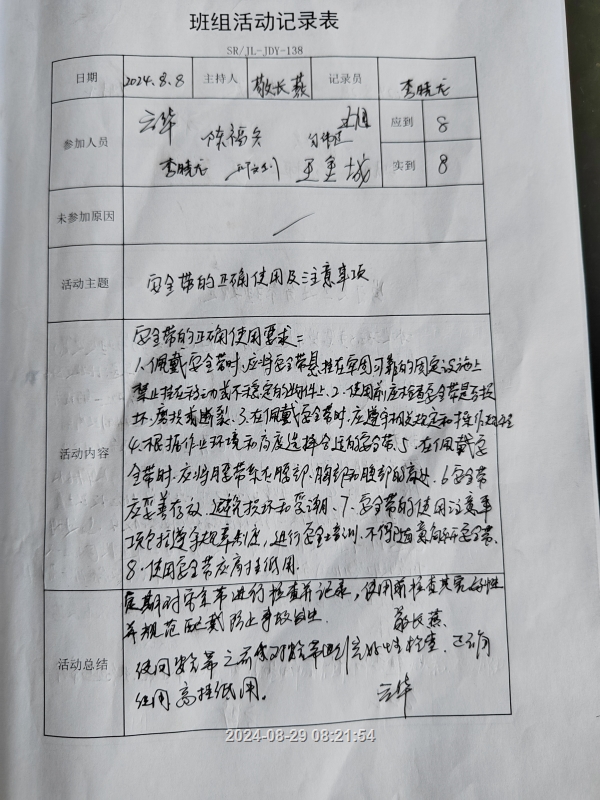 班组活动记录表
SR/JL-JDY-138
日期 2024.8.8 主持人 敬长燕 记录员 李晓龙
参加人员 云华 陈福兴 应到 8
李晓龙 王重城 实到 8
未参加原因 /
活动主题 安全带的正确使用及注意事项
活动内容
安全带的正确使用要求:
1.佩戴安全带时,应将安全带悬挂在牢固可靠的固定设施上
禁止挂在移动或不稳定的物件上.2.使用前应检查安全带是否损
坏、磨损或断裂.3.在佩戴安全带时,应遵守相关规定和操作规程
4.根据作业环境和高度选择合适的安全带.5.在佩戴安
全带时,应将腰带系在腰部、胸部和腿部的 6.安全带
应妥善存放,避免损坏和受潮.7.安全带的使用注意事
项包括遵守规章制度,进行安全培训.不得随意 安全带.
8.使用安全带应高挂低用.
活动总结
定期对安全带进行检查并记录,使用前检查其完好性
并规范配戴防止事故发生. 敬长燕
使用安全带之前 对安全带进行完好性检查,正确
使用高挂低用. 云华
2024-08-29 08:21:54